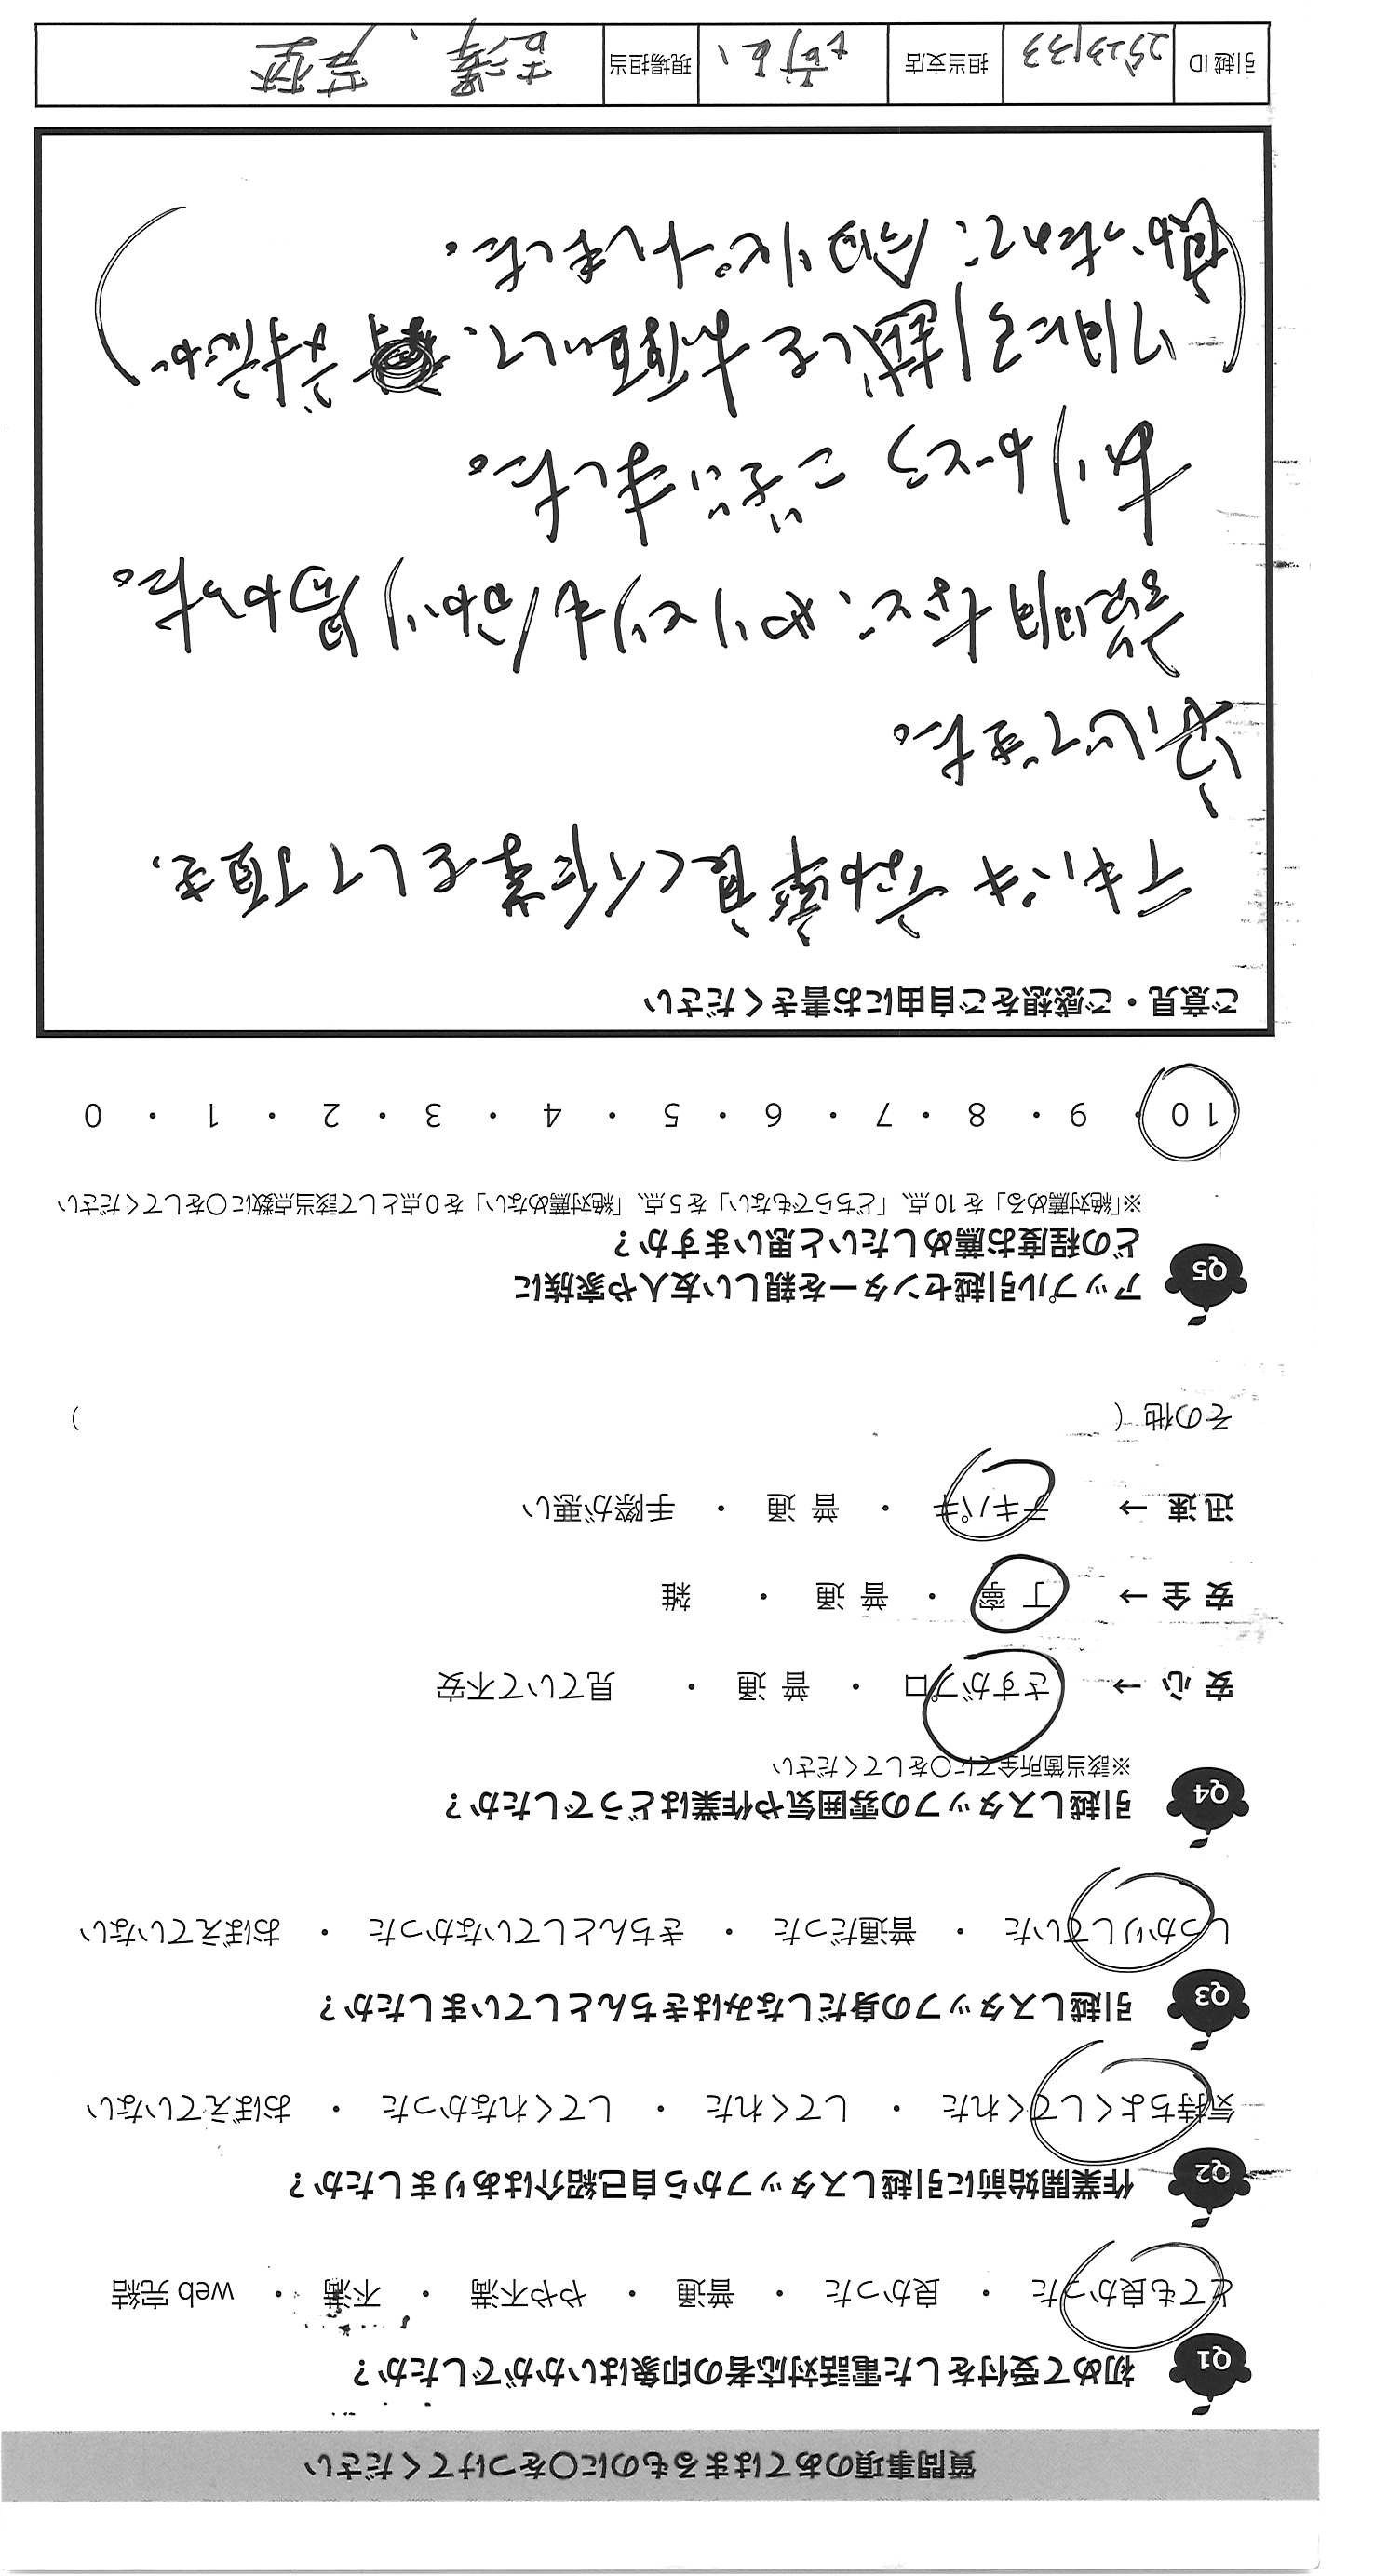 質問事項のあてはまるものに○をつけてください
Q1 初めて受付をした電話対応者の印象はいかがでしたか?
とても良かった ・ 良かった ・ 普通 ・ やや不満 ・ 不満 ・ web 完結
Q2 作業開始前に引越しスタッフから自己紹介はありましたか?
気持ちよくしてくれた ・ してくれた ・ してくれなかった ・ おぼえていない
Q3 引越しスタッフの身だしなみはきちんとしていましたか?
しっかりしていた ・ 普通だった ・ きちんとしていなかった ・ おぼえていない
Q4 引越しスタッフの雰囲気や作業はどうでしたか?
※該当箇所全てに○をしてください
安 心 → さすがプロ ・ 普 通 ・ 見ていて不安
安 全 → 丁 寧 ・ 普 通 ・ 雑
迅 速 → テキパキ ・ 普 通 ・ 手際が悪い
その他 ( )
Q5 アップル引越センターを親しい友人や家族に
どの程度お薦めしたいと思いますか?
※「絶対薦める」を 10 点、「どちらでもない」を 5 点、「絶対薦めない」を 0 点として該当点数に○をしてください
10 ・ 9 ・ 8 ・ 7 ・ 6 ・ 5 ・ 4 ・ 3 ・ 2 ・ 1 ・ 0
ご意見・ご感想をご自由にお書きください
テキパキ 効率良く作業をして頂き、
安心できた。
説明など、やりとりも
ありがとうございました。
引越ID 担当支店 現場担当